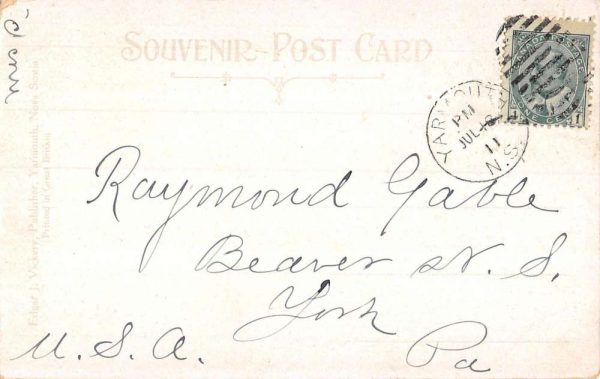 SOUVENIR-POST CARD
CANADA POSTAGE
ONE CENT
1
YARMOUTH
PM
JUL
11
N.S.
Raymond Gable
Beaver St. S.
York
U.S.A. Pa
Edgar J. Vickery, Publisher, Yarmouth, Nova Scotia
Printed in Great Britain